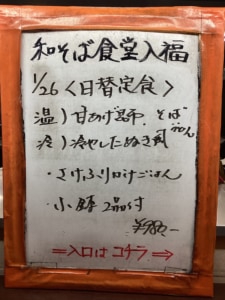 和そば食堂入福
1/26〈日替定食〉
温)甘あげ そば
冷)冷やしたぬき
・さけふりかけごはん
・小鉢2品付
⇒入口はコチラ⇒